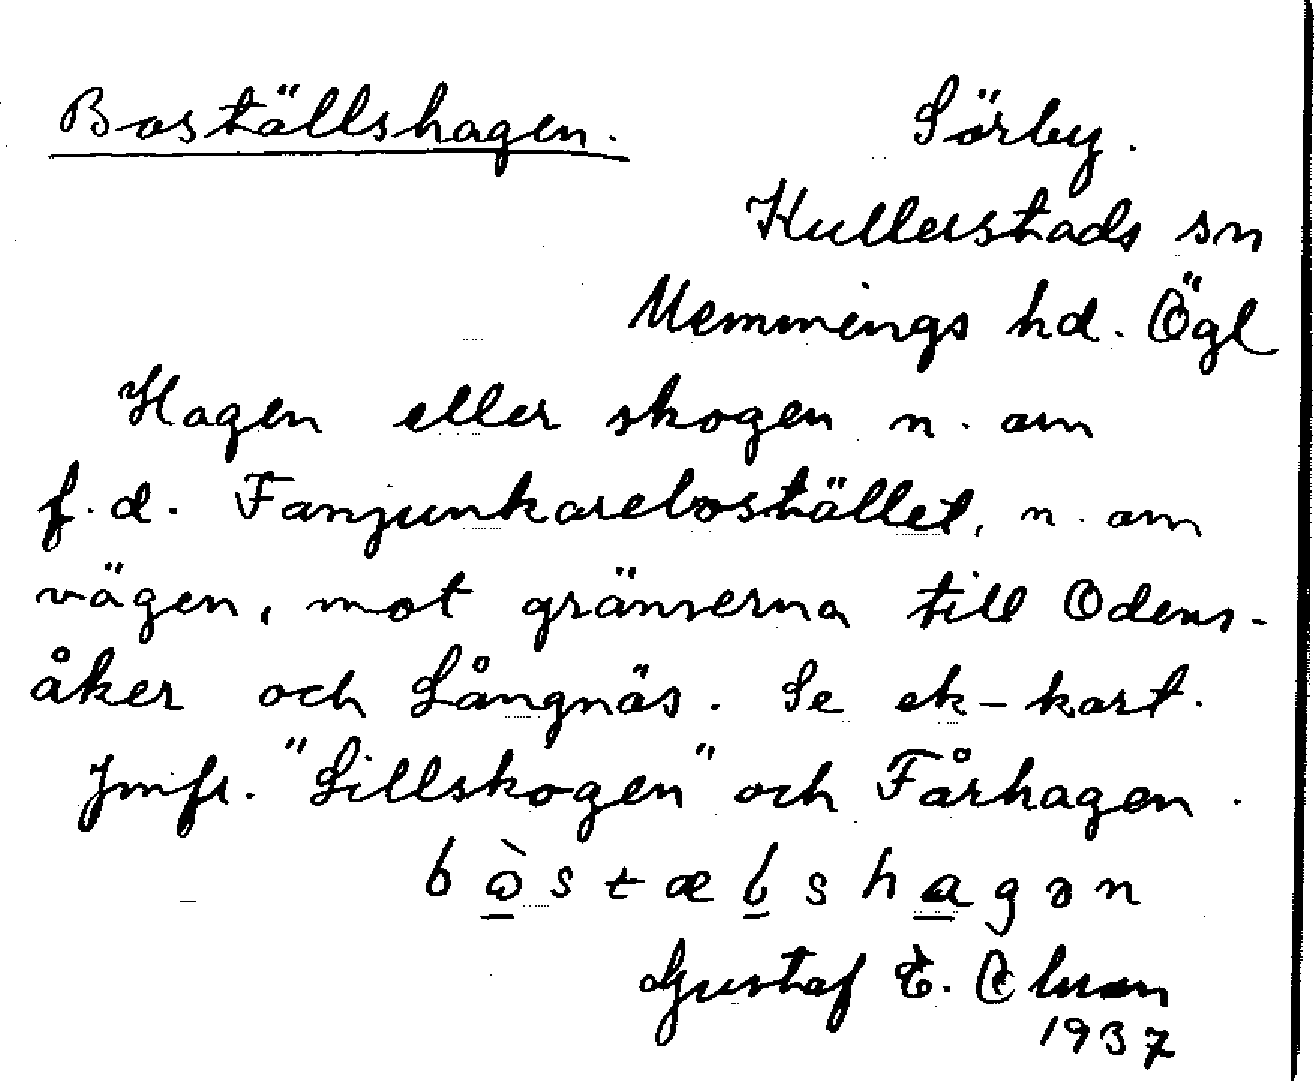 Boställshagen. Sörby.
Kullerstads sn
Memmings hd. Ögl
Hagen eller skogen n. om
f. d. Fanjunkarebostället, n. om
vägen, mot gränserna till Odens-
åker och Långnäs. Se ek-kart.
Jmfr. "Lillskogen" och Fårhagen.
Gustaf E. Olsson
1937